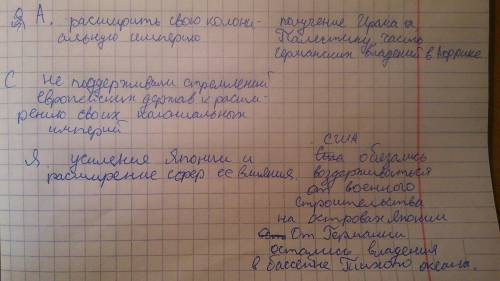 А. расширить свою колони-
альную империю
получение Ирака и
Палестину, часть
германских владений в Африке
С не поддерживали стремлений
европейских держав к расши-
рению своих колониальных
империй
Я усиления Японии и
расширение сфер ее влияния.
США
обязались
воздерживаться
от военного
строительства
на островах Японии
От Германии
остались владения
в бассейне Тихого океана.